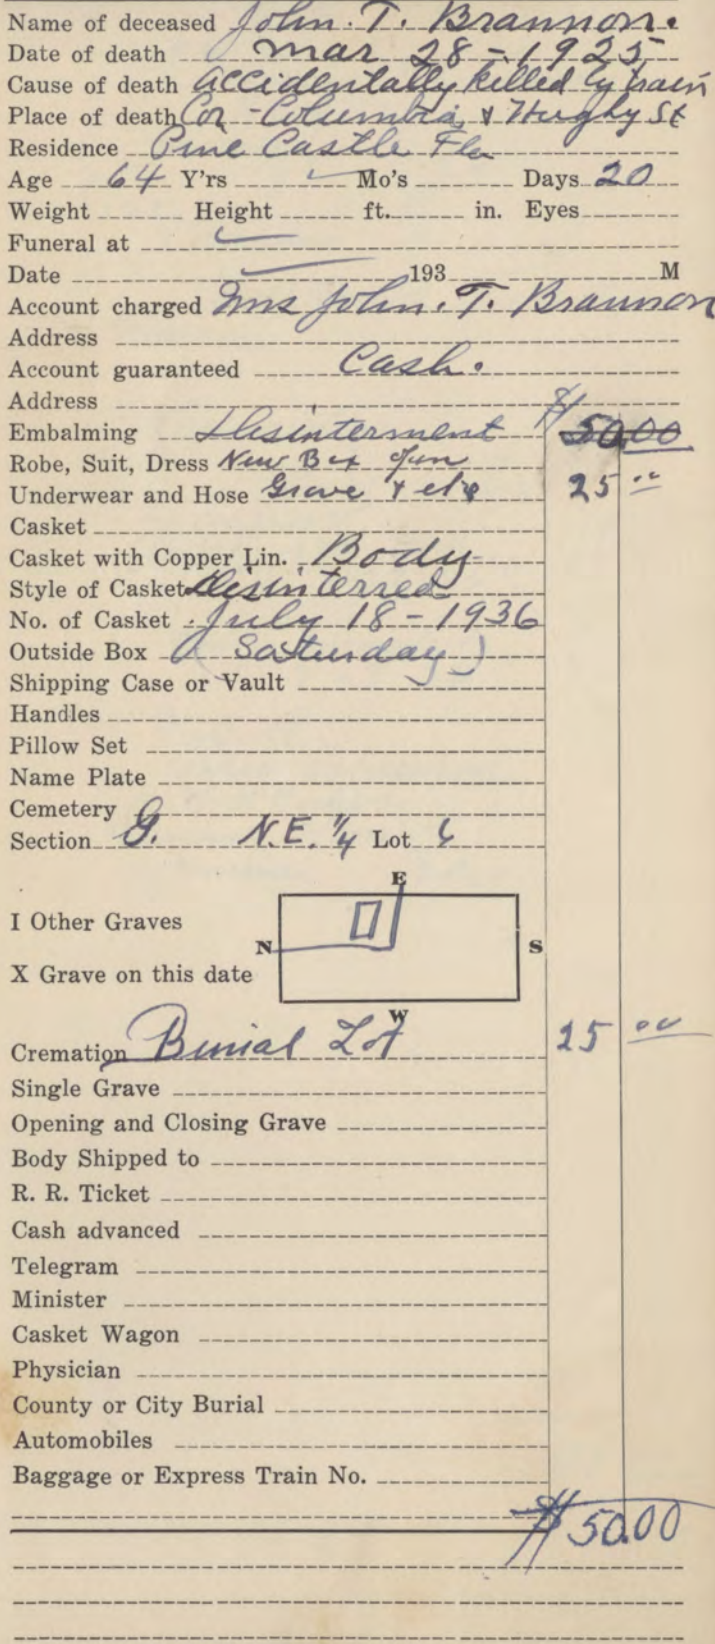 Name of deceased John. T. Brannon.
Date of death Mar 28-1925
Cause of death accidentally killed by train
Place of death Cor-Columbia & Hughy St
Residence Pine Castle Fla
Age 64 Y'rs Mo's Days 20
Weight Height ft. in. Eyes
Funeral at
Date 193 M
Account charged Mrs John. T. Brannon
Address
Account guaranteed Cash.
Address
Embalming Disinterment $ 50.00
Robe, Suit, Dress New Box
Underwear and Hose Grave & etc 25 00
Casket
Casket with Copper Lin. Body
Style of Casket Disinterred
No. of Casket July 18-1936
Outside Box (Saturday)
Shipping Case or Vault
Handles
Pillow Set
Name Plate
Cemetery
Section G. N.E. 1/4 Lot 6
E
I Other Graves
N S
X Grave on this date
W
Cremation Burial Lot 25 00
Single Grave
Opening and Closing Grave
Body Shipped to
R. R. Ticket
Cash advanced
Telegram
Minister
Casket Wagon
Physician
County or City Burial
Automobiles
Baggage or Express Train No.
$50.00